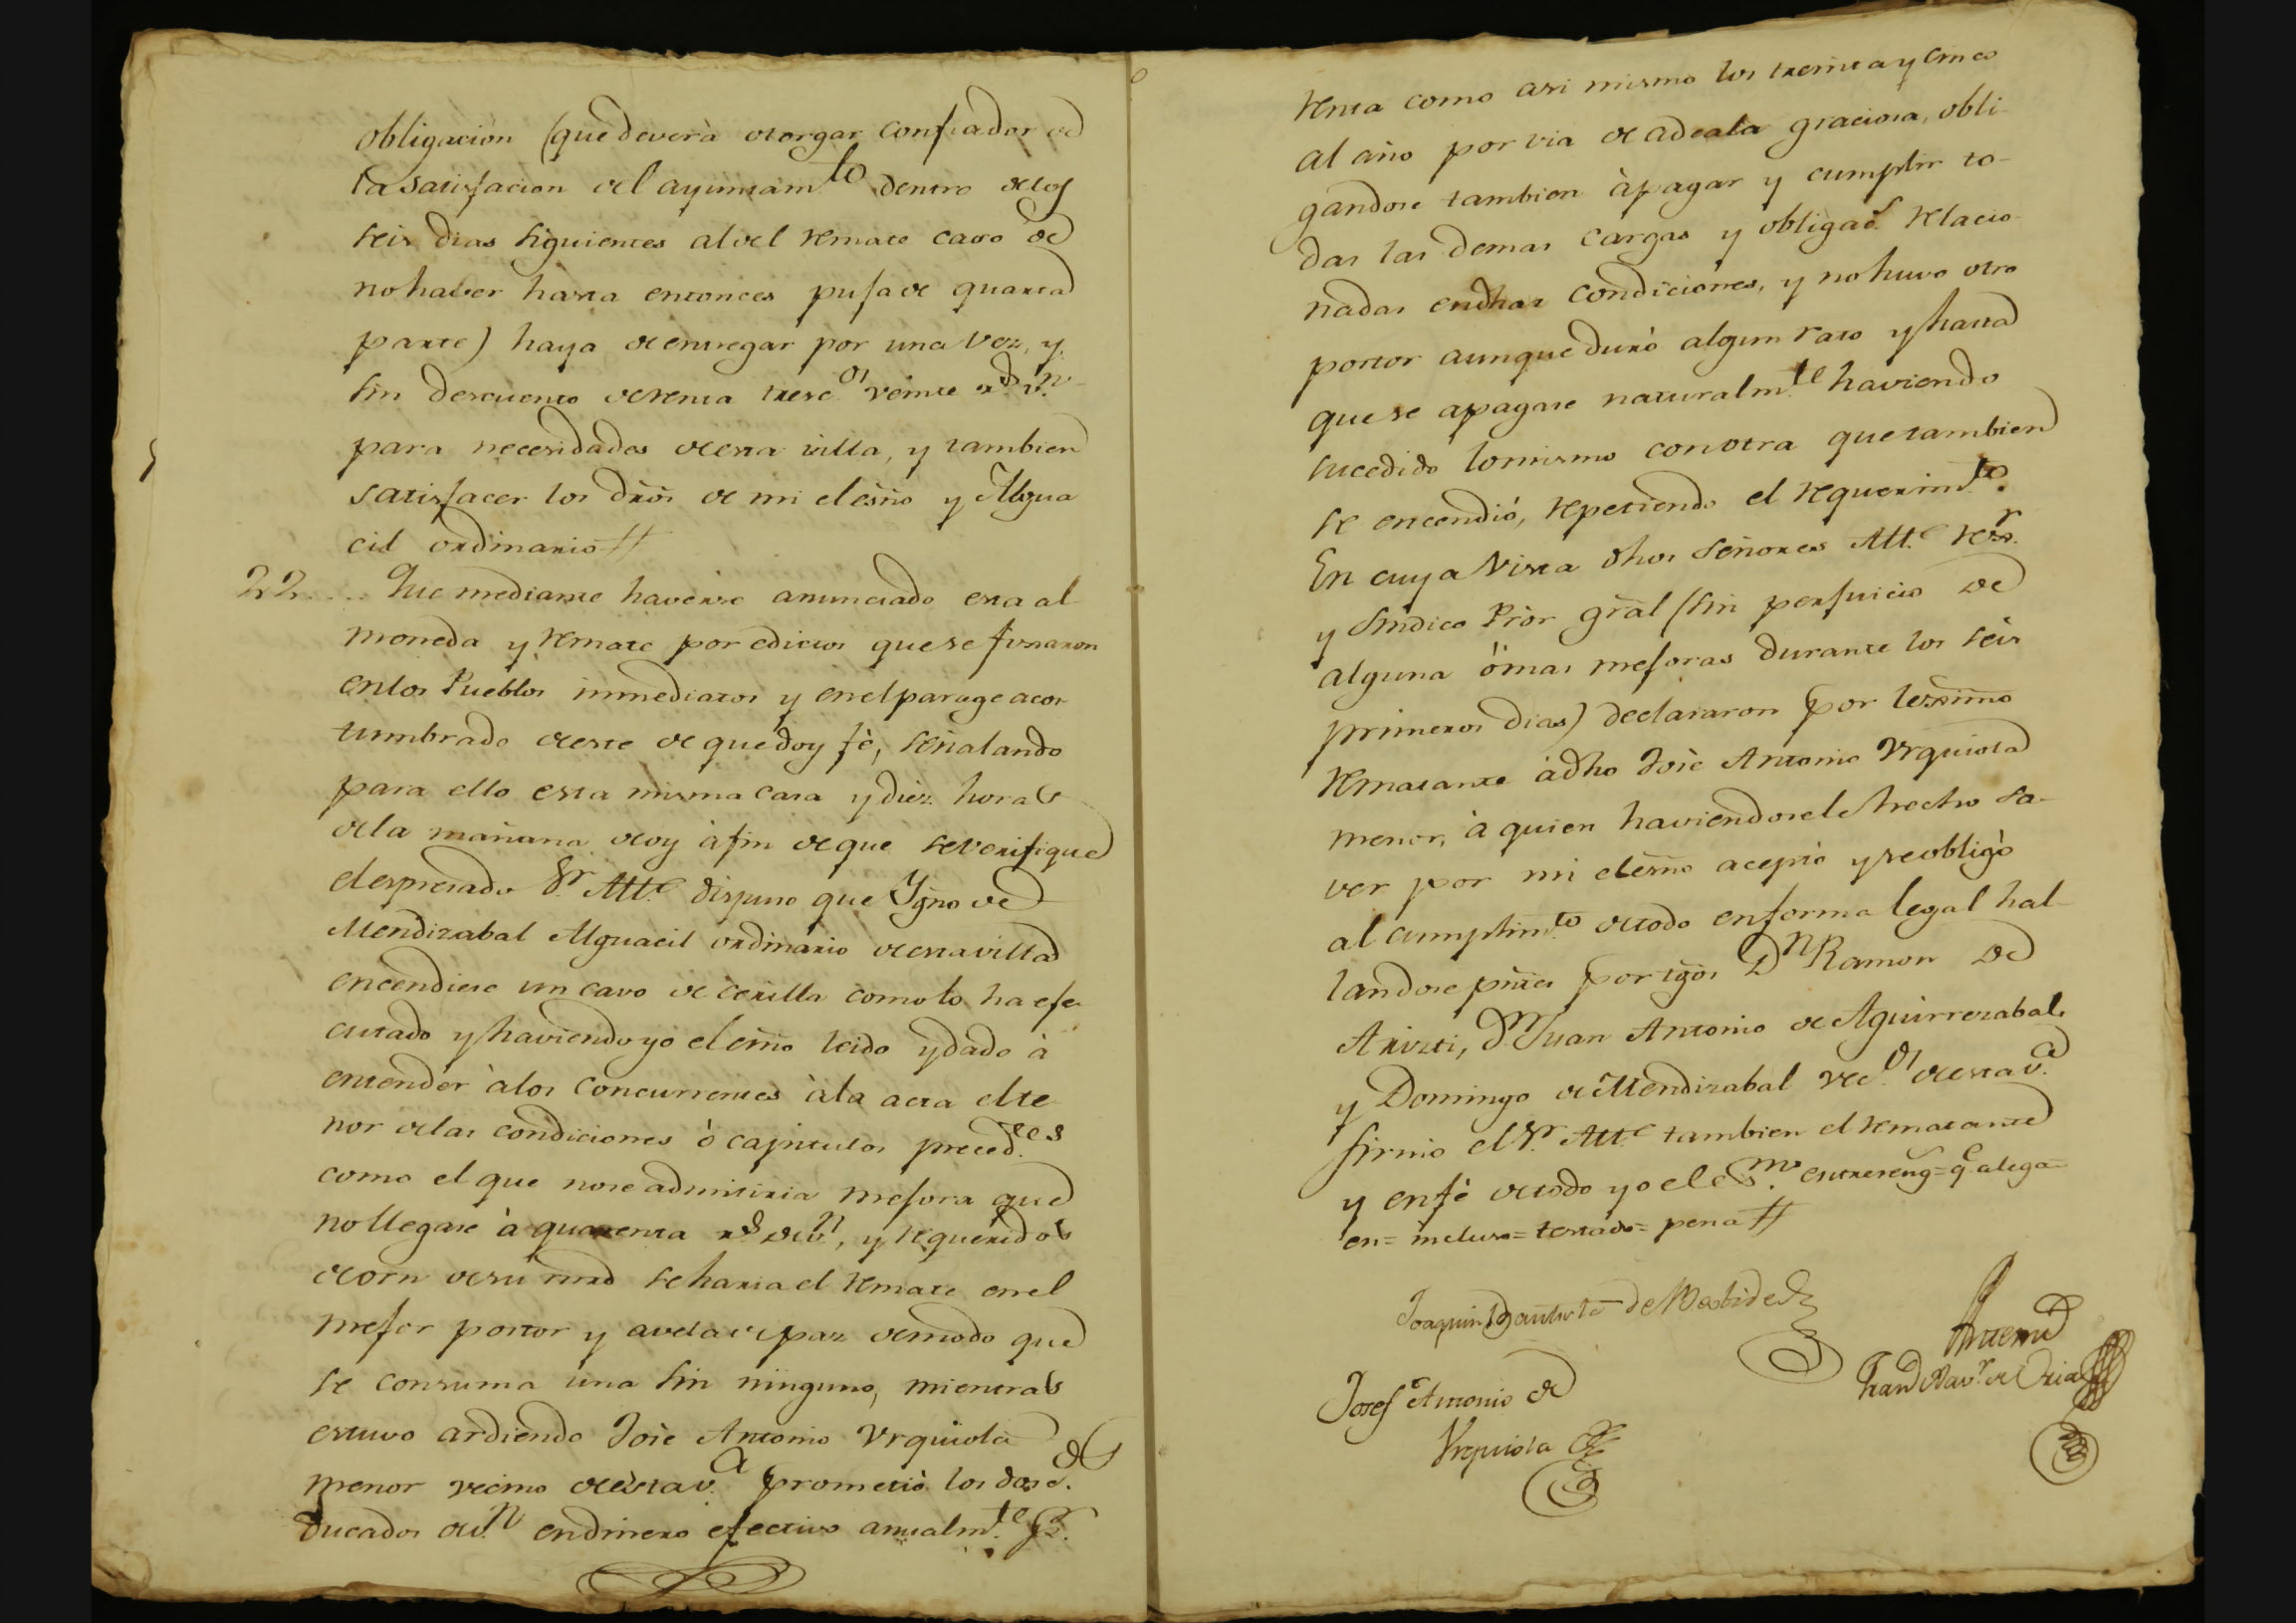 obligacion (que deverà otorgar con fiador de
la satisfacion del ayuntam.to dentro de los
seis dias siguientes al del remate caso de
no haver hasta entonces puja de quarta
parte) haya de entregar por una vez, y
sin descuento de renta tresc.os veinte r.s v.n
para necesidades de esta villa, y tambien
satisfacer los dros de mi el esño y Algua
cil ordinario //
22.... Que mediante haverse anunciado esta al
moneda y remate por edictos que se fixaron
en los Pueblos inmediatos y en el parage acos
tumbrado de este de que doy fè, señalando
para ello esta misma casa y diez horas
de la mañana de oy à fin de que se verifique
el expresado S.r Alt.e dispuso que Ygno de
Mendizabal Alguacil ordinario de esta villa
encendiese un cavo de cerilla como lo ha efe
cutado y haviendo yo el esño leido y dado à
entender à los concurrentes à la acta el te
nor de las condiciones ò capitulos preced.tes
como el que no se admitiria mejora que
no llegase à quarenta r.s de v.n, y requeridos
de orn de su mrd se haria el remate en el
mejor postor y a vela que paz de modo que
se consuma una sin ninguno, mientras
estuvo ardiendo Josè Antonio Urquiola
menor vecino de esta v.a prometió los dosc.os
Ducados de v.n en dinero efectivo anualm.te p.r
renta como asi mismo los treinta y cinco
al año por via de adeala graciosa, obli
gandose tambien à pagar y cumplir to-
das las demas cargas y obligac.s relacio
nadas en dhas condiciones, y no huvo otro
postor aunque durò algun rato y hasta
que se apagase naturalm.te haviendo
sucedido lo mismo con otra que tambien
se encendió, repetiendo el requerim.to.
En cuya vista dhos Señores Alt.e reg.r
y Sindico Pror gral (sin perjuicio de
alguna ò mas mejoras durante los seis
primeros dias) declararon por lexmo
rematante à dho Josè Antonio Urquiola
menor, à quien haviendosele hecho sa-
ver por mi el esño aceptò y se obligò
al cumplim.to de todo en forma legal hal
landose pntes por tgos D.n Ramon de
Arizti, D.n Juan Antonio de Aguirrezabal
y Domingo de Mendizabal vec.os de esta v.a
firmò el S.r Alt.e tambien el rematante
y en fè de todo yo el es.no entrereng.s = q.e alega=
en = incluso = testado = pena //
Joaquin Bautista de
Josef Antonio de
Urquiola
Ante mi
Fran.co Xav.r de Oria